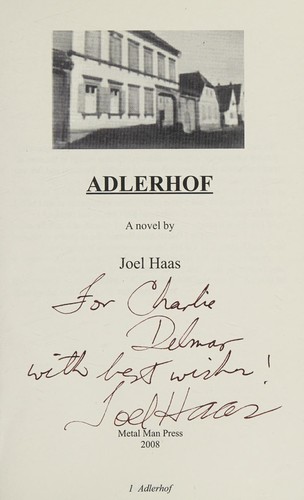 ADLERHOF
A novel by
Joel Haas
For Charlie
Delmar
with best wishes!
Joel Haas
Metal Man Press
2008
1 Adlerhof